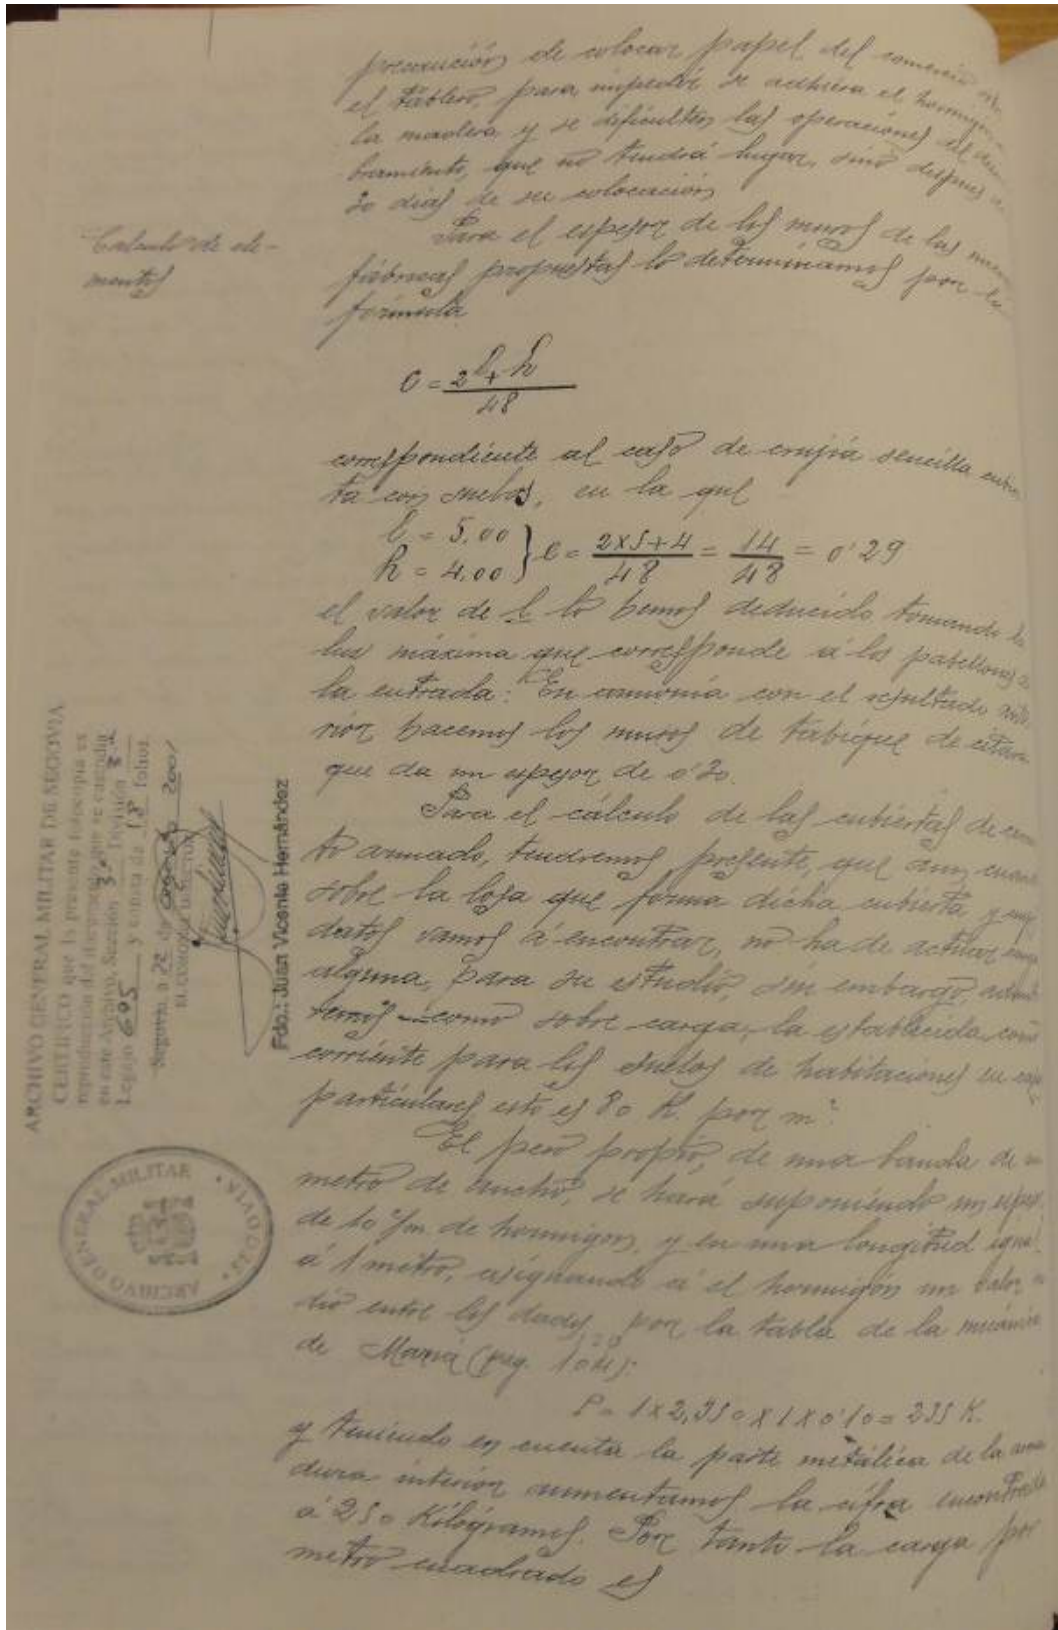 precaución de colocar papel del comercio
el tablero, para impedir se adhiera el hormigón
la madera y se dificulten las operaciones de
bramiento, que no tendrá lugar, sino después de
30 dias de su colocación
Calculo de ele-
mentos
Para el espesor de los muros de las
fábricas propuestas lo determinamos por la
fórmula
e = 2l + h / 48
correspondiente al caso de crujía sencilla
ta con suelos, en la que
l = 5.00
h = 4.00 } e = 2x5+4 / 48 = 14 / 48 = 0'29
el valor de l lo hemos deducido tomando la
luz máxima que corresponde á los pabellones de
la entrada: En armonía con el resultado
rior hacemos los muros de tabique de citara
que da un espesor de 0'30.
Para el cálculo de las cubiertas de
to armado, tendremos presente, que aun
sobre la losa que forma dicha cubierta y
datos vamos á encontrar, no ha de actuar
alguna, para su estudio, sin embargo,
remos como sobre carga, la establecida como
corriente para los suelos de habitaciones en
particulares esto es 80 K. por m²
El peso propio, de una banda de
metro de ancho, se hará suponiendo un
de 10 c/m de hormigon, y en una longitud igual
á 1 metro, asignando á el hormigón un valor
dio entre los dados por la tabla de la mecánica
de Marvá (pag. ):
P = 1x2,350x1x0'10 = 235 K.
y teniendo en cuenta la parte metálica de la
dura interior aumentamos la cifra encontrada
á 250 Kilógramos. Por tanto la carga por
metro cuadrado es
ARCHIVO GENERAL MILITAR DE SEGOVIA
CERTIFICO que la presente fotocopia es
reproducción del documento que se custodia
en este Archivo, Sección 3ª División 3ª
Legajo 695 y consta de 18 folios.
Segovia, a 22 de 2001
Fdo.: Juan Vicente Hernández
ARCHIVO GENERAL MILITAR
• SEGOVIA •